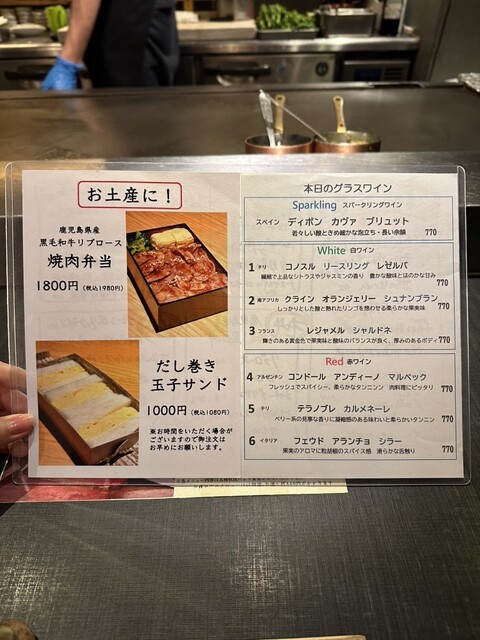 お土産に！
鹿児島県産
黒毛和牛リブロース
焼肉弁当
1800円 (税込1980円)
だし巻き
玉子サンド
1000円 (税込1080円)
※お時間をいただく場合が
ございますので御注文は
お早めにお願いします。
本日のグラスワイン
Sparkling スパークリングワイン
スペイン ディボン カヴァ ブリュット
若々しい酸ときめ細かな泡立ち・長い余韻 770
White 白ワイン
1 チリ コノスル リースリング レゼルバ
繊細で上品なシトラスやジャスミンの香り 豊かな酸味とほのかな甘み
770
2 南アフリカ クライン オランジェリー シュナンブラン
しっかりとした酸と熟れたリンゴを想わせる柔らかな果実味 770
3 フランス レジャメル シャルドネ
輝きのある黄金色で果実味と酸味のバランスが良く、厚みのあるボディ 770
Red 赤ワイン
4 アルゼンチン コンドール アンディーノ マルベック
フレッシュでスパイシー、柔らかなタンニン 肉料理にピッタリ 770
5 チリ テラノブレ カルメネーレ
ベリー系の見事な香りに凝縮感のある味わいと柔らかいタンニン 770
6 イタリア フェウド アランチョ シラー
果実のアロマに粒胡椒のスパイス感 滑らかな舌触り 770